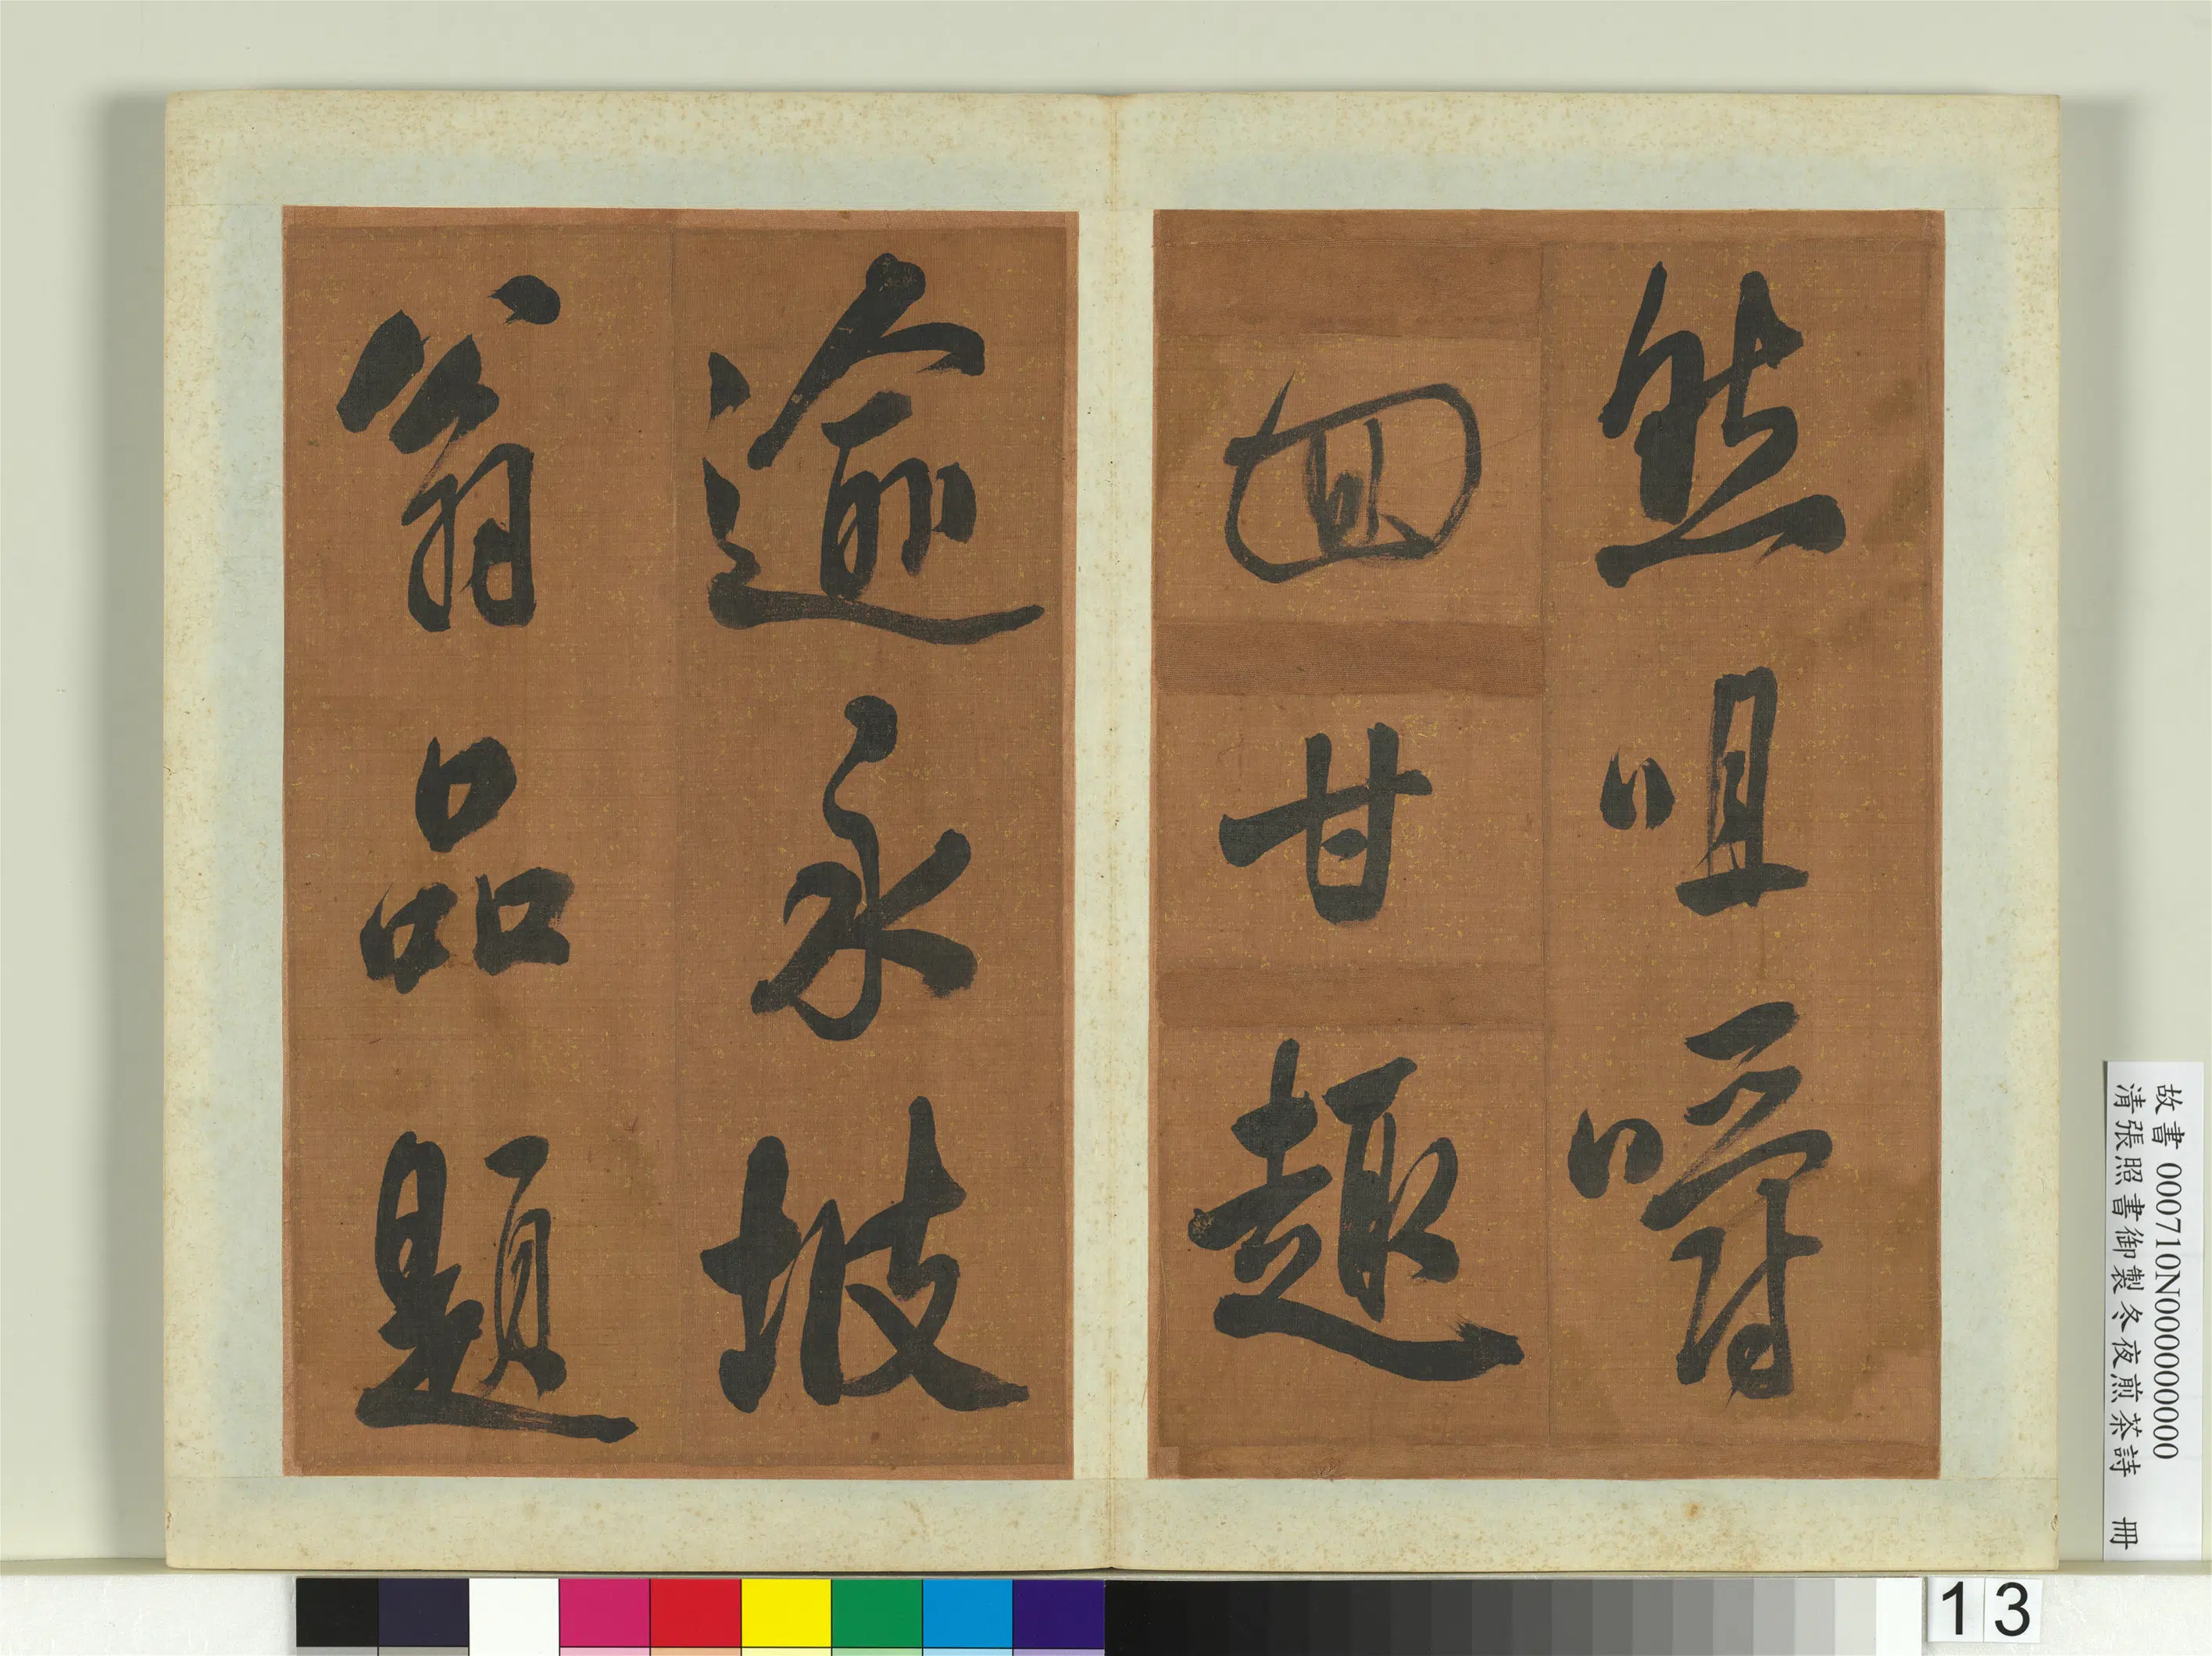 然咀嚼
回甘趣
逾永坡
翁品題
故書 000710N000000000
清張照書御製冬夜煎茶詩 冊
13